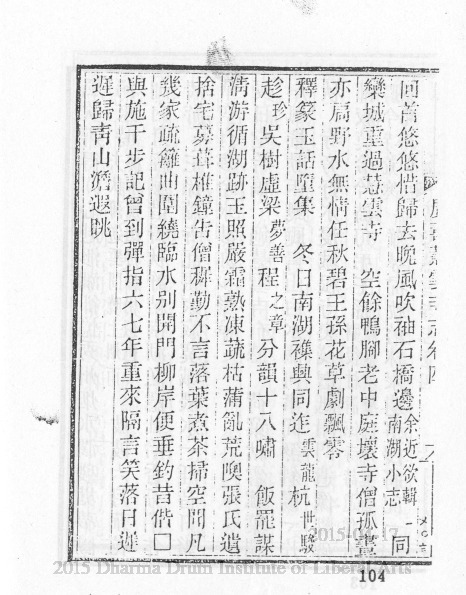 回首悠悠惜歸去晚風吹袖石橋邊余近欲輯南湖小志 一同
欒城重過慧雲寺 空餘鴨腳老中庭壞寺僧孤晝
亦扃野水無情任秋碧王孫花草劇飄零
釋篆玉話墮集 冬日南湖襍興同迮雲龍杭世駿
趁珍吳樹虛梁夢善程之章分韻十八嘯 飯罷謀
清游循湖跡玉照嚴霜熟凍蔬枯蒲亂荒隩張氏遺
捨宅募葺椎鐘告僧穉勤不言落葉煮茶掃空閒凡
幾家疏籬曲圍繞臨水別開門柳岸便垂釣昔偕口
與施干步記曾到彈指六七年重來隔言笑落日遲
遲歸青山澹遐眺
104
2015-0 -17
2015 Dharma Drum Institute of Liberal Arts